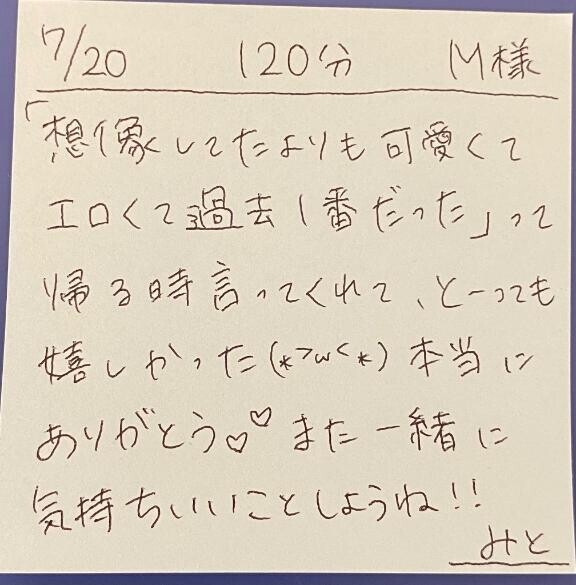 7/20 120分 M様
「想像してたよりも可愛くて
エロくて過去1番だった」って
帰る時言ってくれて、とーっても
嬉しかった(*>ω<*)本当に
ありがとう♡♡また一緒に
気持ちいいことしようね!!
みと